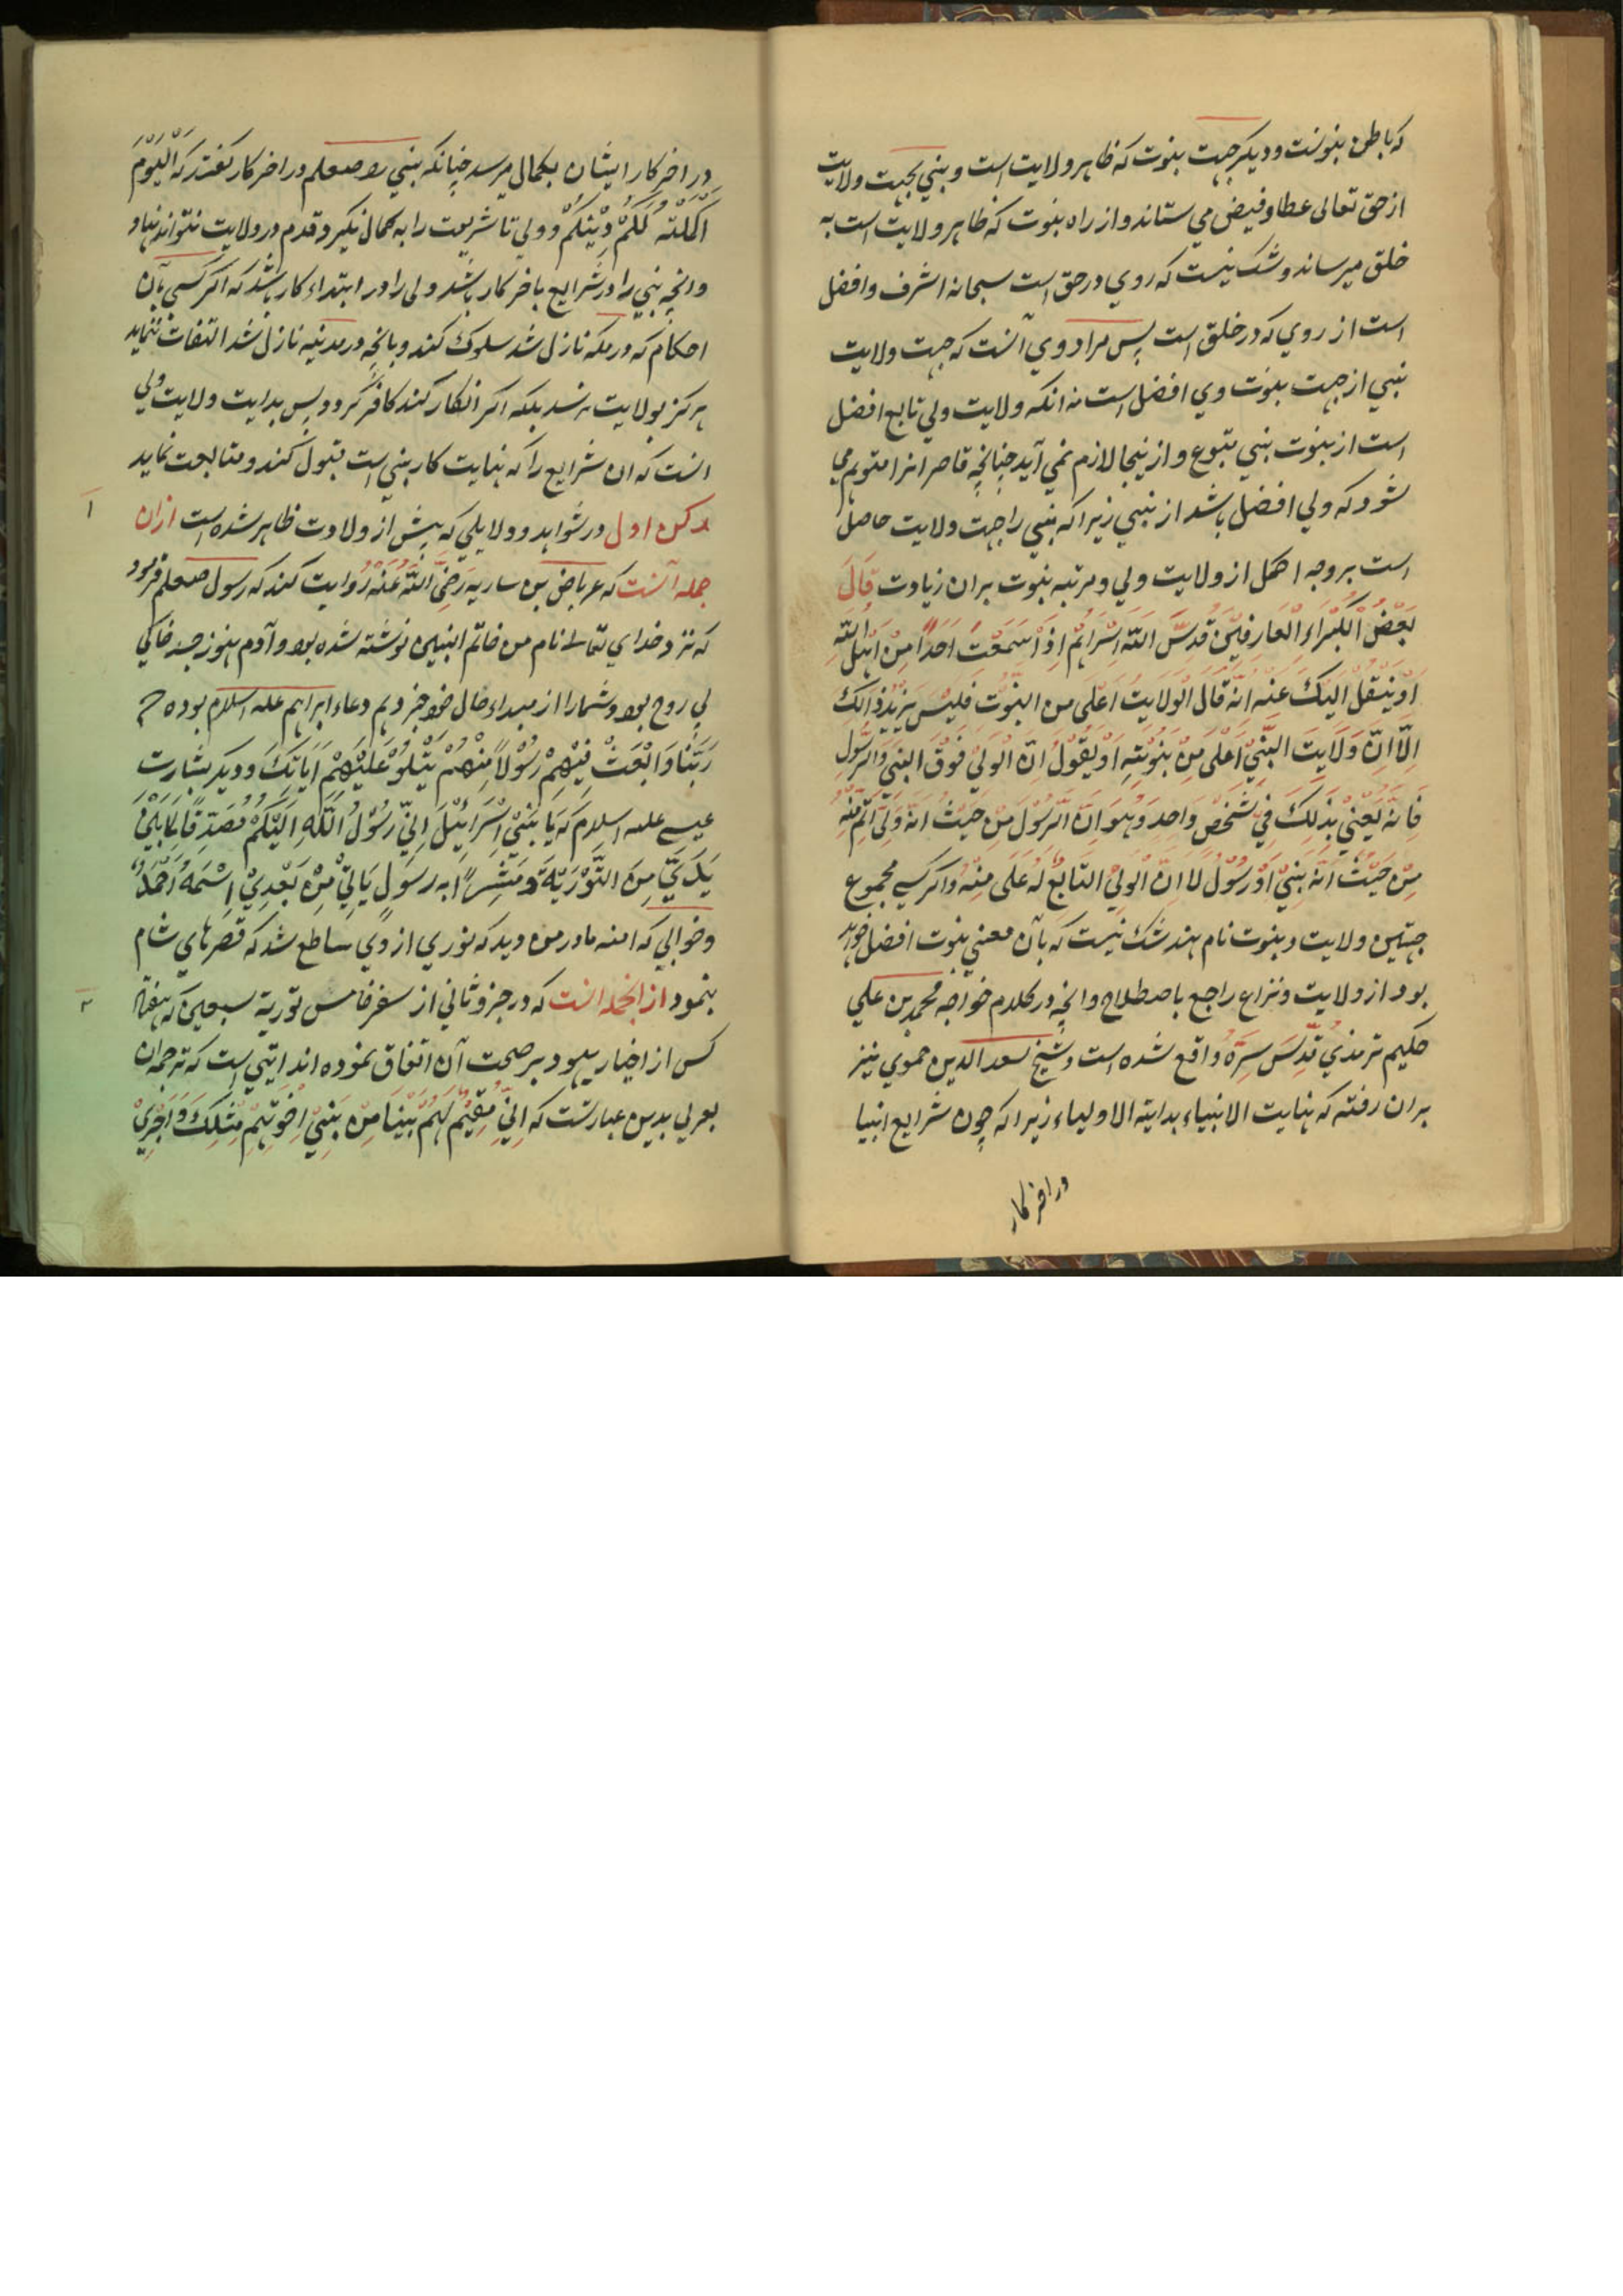 که باطن نبوتست و دیگر جهت نبوت که ظاهر ولایت است و نبی بجهت ولایت
از حق تعالی عطا و فیض می ستاند و از راه نبوت که ظاهر ولایت است به
خلق میرساند و شک نیست که روی در حق است سبحانه اشرف و افضل
است از روی که در خلق است پس مراد وی آنست که جهت ولایت
نبی از جهت نبوت وی افضل است نه انکه ولایت ولی تابع افضل
است از نبوت نبی متبوع و از ینجا لازم نمی آید چنانچه قاصر انرا متوهم می
شود که ولی افضل باشد از نبی زیرا که نبی را جهت ولایت حاصل
است بر وجه اکمل از ولایت ولی و مرتبه نبوت بران زیادت قَالَ
بَعْضُ الْکُبَرَاءِ الْعَارِفِیْنَ قُدِّسَ اللّٰه اَسْرَارُهُمْ اِذَا سَمِعْتَ اَحَدًا مِنْ اَهْلِ اللّٰهِ
اَوْ یَنْقُلُ اِلَیْکَ عَنْه اَنَّه قَالَ الْوِلَایَتُ اَعْلَی من النبُوَّت فَلَیْسَ یُرِیْدُ ذَالِکَ
اِلَّا اِنَّ وَلَایَتَ النَّبِیِّ اَعْلَی مِنْ نَبُوَّتِهِ اَوْ یَقُوْلُ اِنَّ الْوَلِیَّ فَوْقَ النَّبِیِّ وَالرَّسُوْلِ
فَاِنَّه یَعْنِیْ بِذٰلِکَ فِیْ شَخْصٍ وَاحِدٍ وَهُوَ اِنَّ الرَّسُوْلَ مِنْ حَیْثُ اَنَّه وَلِیٌّ اَتَمُّ مِنْهُ
مِنْ حَیْثُ اَنَّه نَبِیٌّ اَوْ رَسُوْلٌ لا اِنَّ الْوَلِیَّ التَّابِعَ لَه عَلی مِنْهُ و اگر کسی مجموع
جهتین ولایت و نبوت نام نهد شک نیست که بآن معنی نبوت افضل خواهد
بود از ولایت و نزاع راجع باصطلاح و انچه در کلام خواجه محمد بن علی
حکیم ترمذی قُدِّسَ سِرُّهُ واقع شده است و شیخ سعد الدین حموی نیز
بران رفته که نهایت الانبیاء بدایة الاولیاء زیرا که چون شرایع انبیا
در اخر کار
در اخر کار ایشان بکمال میرسد چنانکه نبی ما صلعم در اخر کار گفتند که اَلْیَوْمَ
اَکْمَلْتُ لَکُمْ دِیْنَکُمْ و ولی تا شریعت را به کمال نگیرد قدم در ولایت نتواند نهاد
و انچه نبی را در شرایع باخر کار باشد ولی را در ابتداء کار باشد که اگر کسی بآن
احکام که در مکه نازل شد سلوک کند و بانچه در مدینه نازل شد التفات ننماید
هرگز بولایت نرسد بلکه اگر انکار کند کافر گردد پس بدایت ولایت ولی
انست که ان شرایع را که نهایت کار نبی است قبول کند و متابعت نماید
رکن اول در شواهد و دلایلی که پیش از ولادت ظاهر شده است ازان
۱
جمله آنست که عرباض بن ساریه رَضِیَ اللّٰهُ عَنْهُ روایت کند که رسول صلعم فرمود
که نزد خدای تعالی نام من خاتم النبیین نوشته شده بود و آدم هنوز جسد خاکی
بی روح بود و شما را از مبداء حال خود خبر دهم دعاء ابراهیم علیه السلام بوده ام
رَبَّنَا وَابْعَثْ فِیْهِمْ رَسُوْلًا مِنْهُمْ یَتْلُوْ عَلَیْهِمْ اٰیَاتِکَ و دیگر بشارت
عیسی علیه السلام که یَا بَنِیْ اِسْرَائِیْلَ اِنِّیْ رَسُوْلُ اللّٰهِ اِلَیْکُمْ مُصَدِّقًا لِمَا بَیْنَ
یَدَیَّ مِنَ التَّوْرَیٰةِ وَ مُبَشِّرًا بِرَسُوْلٍ یَاتِیْ مِنْ بَعْدِیْ اِسْمُهُ اَحْمَدُ
و خوابی که امنه مادر من دید که نوری از وی ساطع شد که قصرهای شام
بنمود ازانجمله انست که در جزو ثانی از سفر خامس توریة سبعین که هفتاد
۲
کس از احبار یهود بر صحت آن اتفاق نموده اند ایتی است که ترجمه ان
بعربی بدین عبارتست که اِنِّیْ مُقِیْمٌ لَهُمْ نَبِیًّا مِنْ بَنِیْ اِخْوَتِهِمْ مِثْلِکَ وَ اَجْرِیْ